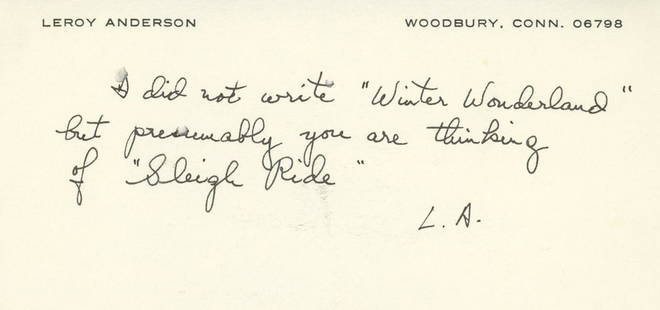 LEROY ANDERSON WOODBURY, CONN. 06798
I did not write "Winter Wonderland"
but presumably you are thinking
of "Sleigh Ride"
L. A.